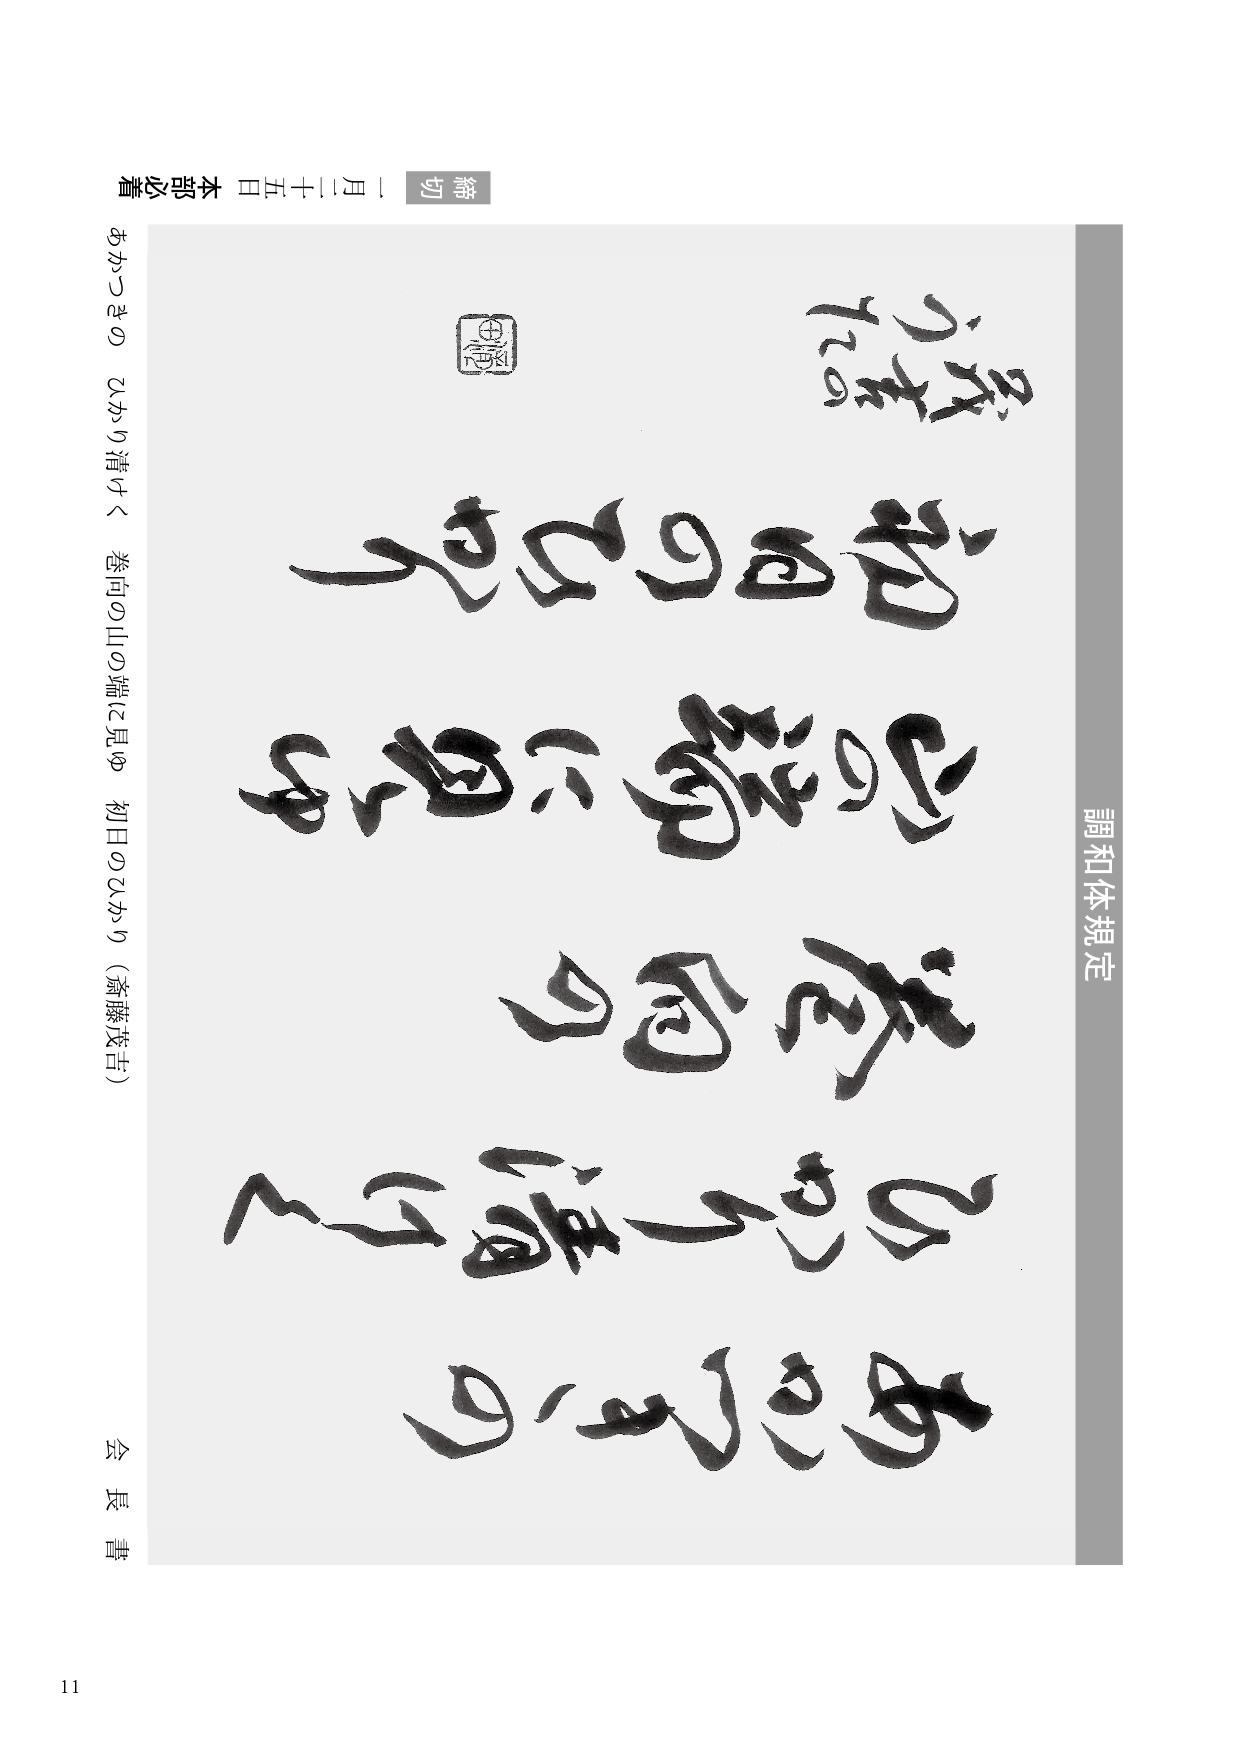 調和体規定
あかつきの
ひかり清けく
巻向の
山の端に見ゆ
初日のひかり
茂吉の
うた
締切
一月二十五日 本部必着
あかつきの ひかり清けく 巻向の山の端に見ゆ 初日のひかり（斎藤茂吉）
会長書
11